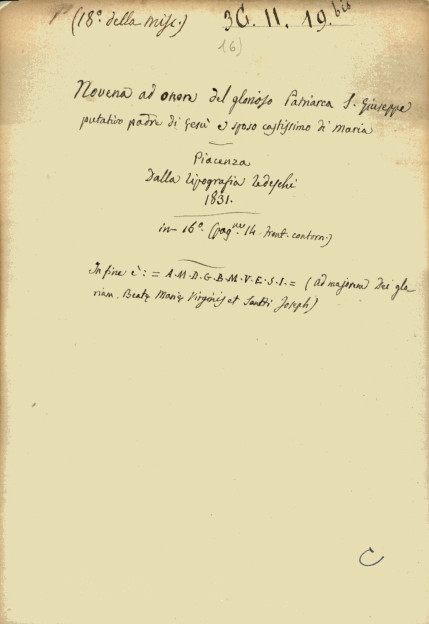 (18º. della Misc.) 36. II. 19. bis
16)
Novena ad onore del glorioso Patriarca S. Giuseppe
putativo padre di Gesù e sposo castissimo di Maria
Piacenza
Dalla Tipografia Tedeschi
1831.
in-16º. (pagne 14. front. contorn.)
In fine è: = A. M. D. G. B. M. V. E. S. I. = (ad majorem Dei glo
riam. Beatæ Mariæ Virginis et Sancti Joseph)
C